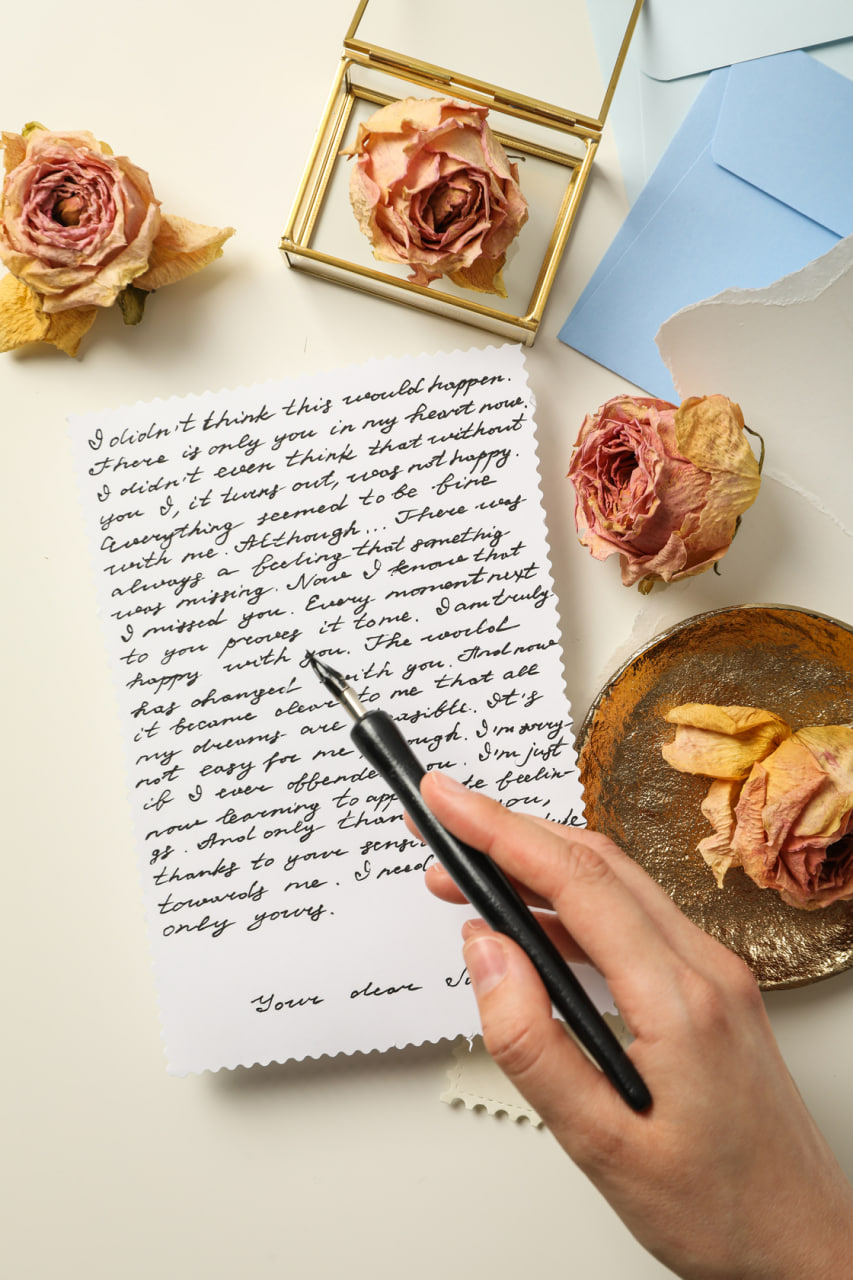 I didn't think this would happen.
There is only you in my heart now.
I didn't even think that without
you I, it turns out, was not happy.
Everything seemed to be fine
with me. Although... There was
always a feeling that somethig
was missing. Now I know that
I missed you. Every moment next
to you proves it to me. I am truly
happy with you. The world
has changed with you. And now
it became clear to me that all
my dreams are
not easy for me I'm sorry
if I ever I'm just
now learning to feelin-
gs. And only you,
thanks to your
towards me. I need
only yours.
Your dear